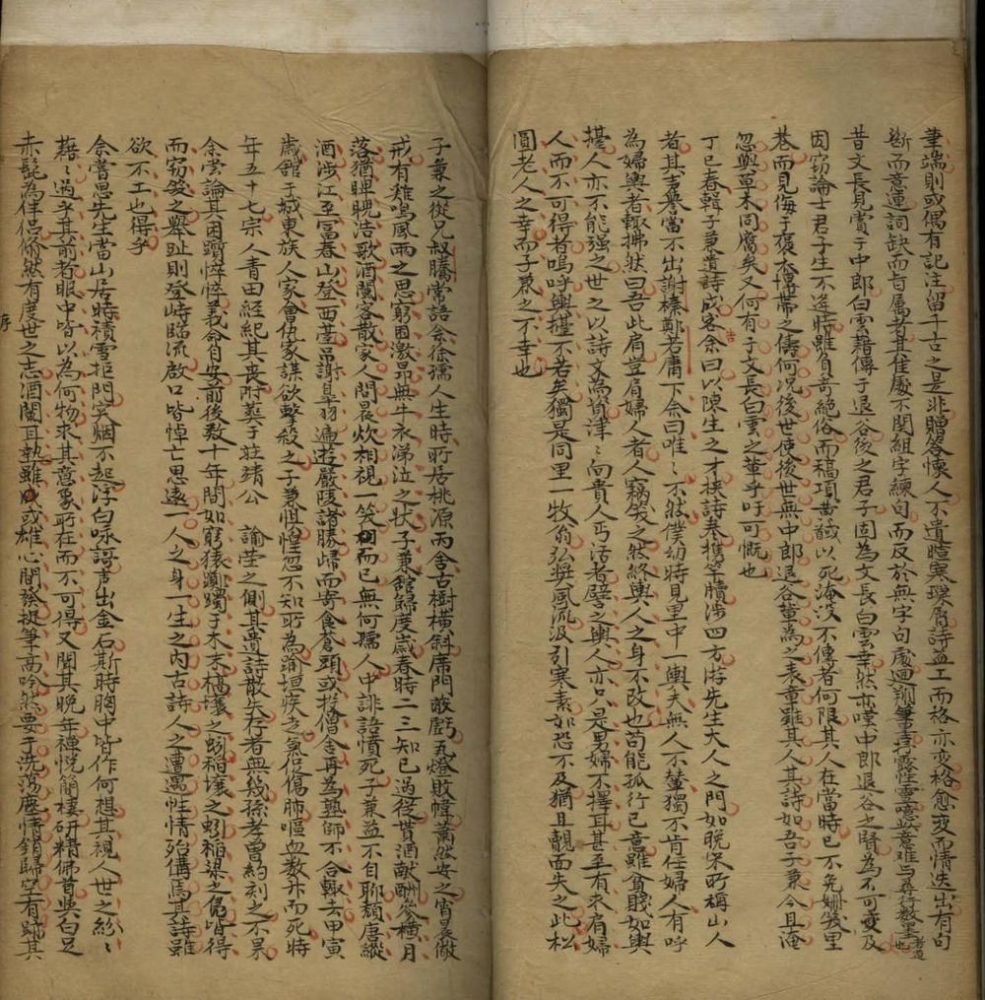 筆端則或偶有記注留千古之是非贈答懷人不遺暄寒瑣屑詩益工而格亦变格愈变而情迭出有句
斷而意連詞缺而旨属者其佳處不関組字練句而反於無字句處迴翔筆端靈性靈噫此意难与尋行数墨者道也
昔文長見賞于中郎白雲藉傳于退谷後之君子固為文長白雲幸然亦嘆中郎退谷之賢為不可更及
因窃論士君子生不逢時雖負奇絕俗而稿項黄馘以死淹沒不傳者何限其人在當時已不免姍笑里
巷而見侮于褒衣博帶之儔何況後世使後世無中郎退谷輩為之表章雖其人其詩如吾子兼今且淹
忽與草木同腐矣又何有于文長白雲之輩乎吁可慨也
丁巳春輯子兼遺詩成客余曰以陳生之才挾詩卷携筆牘涉四方游先生大人之門如晚宋所稱山人
者其声譽當不出謝榛鄭若庸下余曰唯〻不然僕幼時見里中一輿夫無人不輦獨不肯任婦人有呼
為婦輿者輒拂然曰吾此肩豈肩婦人者人竊笑之然終輿人之身不改也苟能孤行己意雖貧賤如輿
擡人亦不能强之世之以詩文為質津〻向貴人丐活者譬之輿人亦只是男婦不擇耳甚至有求肩婦
人而不可得者嗚呼輿擡不若矣獨是同里一牧翁弘奬風流汲引寒素如恐不及猶且覿面失之此松
圓老人之幸而子兼之不幸也
子兼之從兄叔騰常語余徐孺人生時所居桃源雨舍古樹橫斜席門歌戲瓦燈敗幃蕭然安之宵晨儆
戒有雞鳴風雨之思窮困激昂無牛衣涕泣之状子兼館歸度歳春時二三知已過從貰酒献酬參橫月
落猶睥睨浩歌酒闌客散家人問晨炊相視一笑而已無何孺人中誹語憤死子兼益不自聊頹唐縱
酒涉江至富春山登西臺謝皋羽遍遊嚴陵諸勝歸而寄食蒼頭或投僧舍再為塾師不合輒去甲寅
歳館于城東族人家會仇家謀欲擊殺之子兼惧惶忽不知所為踰垣疾走氣促傷肺嘔血数升而死時
年五十七宗人青田經紀其丧附葬于莊靖公 諭塋之側其遺詩散失存者無幾孫孝曾約刻之不果
余嘗論其困躓悴㤥義命自安前後数十年間如窮猿躑躅于木末槁壤之蚓稻粱之凫皆得
而窃笑之舉趾則登峙臨流啟口皆悼亡思遠一人之身一生之内古詩人之遭遇性情殆備焉其詩雖
欲不工也得乎
余嘗思先生當山居時積雪拒門突烟不起浮白咏謌声出金石斯時胸中皆作何想其視人世之紛〻
藉〻過乎其前者眼中皆以為何物求其意象所在而不可得又聞其晚年禪悦簡棲研精佛旨与白足
赤髭為伴侣翛然有度世之志酒闌耳熱雖或雄心間發执筆高吟然要于洗荡塵情銷歸空有歸其
序